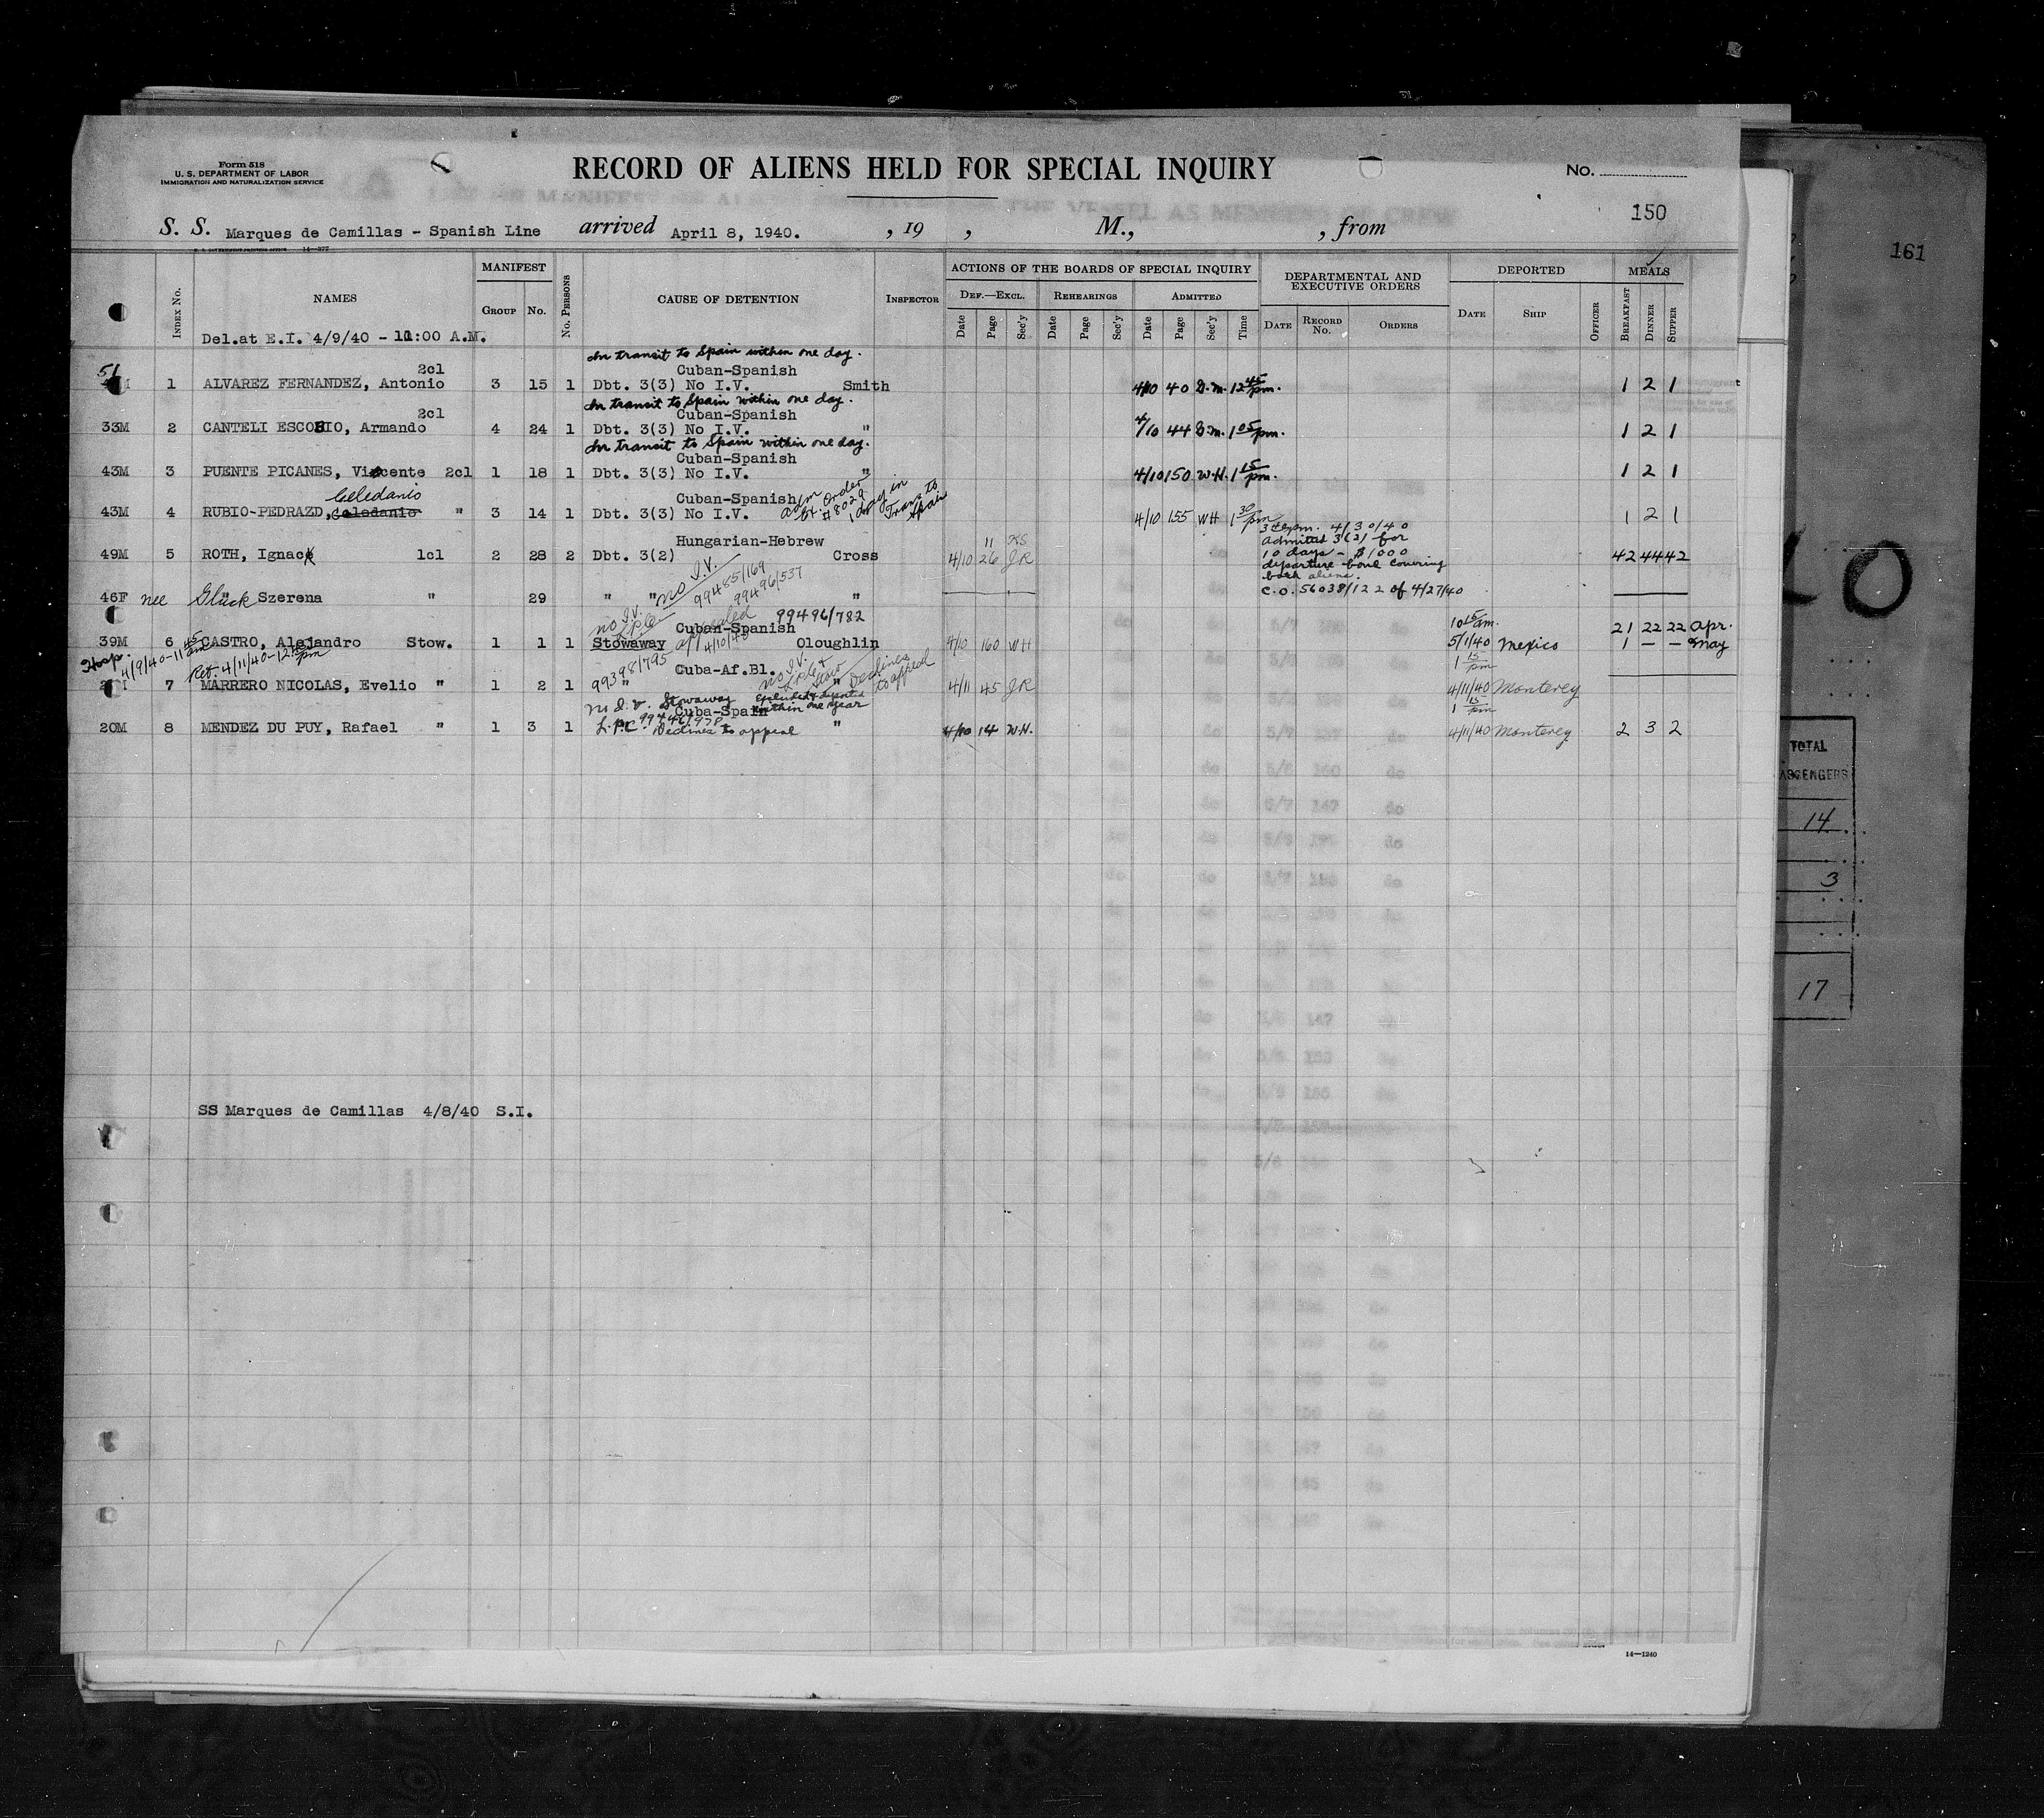 Form 518
U. S. DEPARTMENT OF LABOR
IMMIGRATION AND NATURALIZATION SERVICE
RECORD OF ALIENS HELD FOR SPECIAL INQUIRY
No.
150
161
S. S. Marques de Camillas - Spanish Line arrived April 8, 1940. , 19 , M., , from
14-277
INDEX No.
NAMES
MANIFEST
GROUP No.
No. PERSONS
CAUSE OF DETENTION
INSPECTOR
ACTIONS OF THE BOARDS OF SPECIAL INQUIRY
DEF.—EXCL. REHEARINGS ADMITTED
Date Page Sec'y Date Page Sec'y Date Page Sec'y Time
DEPARTMENTAL AND EXECUTIVE ORDERS
DATE RECORD No. ORDERS
DEPORTED
DATE SHIP OFFICER
MEALS
BREAKFAST DINNER SUPPER
Del.at E.I. 4/9/40 - 11:00 A.M.
In transit to Spain within one day.
2cl Cuban-Spanish
51 1 ALVAREZ FERNANDEZ, Antonio 3 15 1 Dbt. 3(3) No I.V. Smith 4/10 40 D.M. 12 45 pm. 1 2 1
In transit to Spain within one day.
2cl Cuban-Spanish
33M 2 CANTELI ESCOBIO, Armando 4 24 1 Dbt. 3(3) No I.V. " 4/10 44 D.M. 1 05 pm. 1 2 1
In transit to Spain within one day.
Cuban-Spanish
43M 3 PUENTE PICANES, Vicente 2cl 1 18 1 Dbt. 3(3) No I.V. " 4/10 150 W.H. 1 15 pm. 1 2 1
Celedanio Cuban-Spanish
43M 4 RUBIO-PEDRAZD, Celedanio " 3 14 1 Dbt. 3(3) No I.V. 4/10 155 WH 1 30 pm 1 2 1
Adm Ex. Order #8029 1 day in Trans to Spain
Hungarian-Hebrew 11
49M 5 ROTH, Ignac 1cl 2 28 2 Dbt. 3(2) Cross 4/10 26 JR 42 44 42
4/30/40
Admitted 3(2) for
10 days - $1000
departure bond covering
both aliens.
C.O. 56038/122 of 4/27/40
no I.V.
99485/169
99496/537
46F nee Glück Szerena " 29 " " "
no I.V. appealed 4/10/40 99496/782
Cuban-Spanish
39M 6 CASTRO, Alejandro Stow. 1 1 1 Stowaway Oloughlin 4/10 160 WH 10 15 am. 5/1/40 Mexico 21 22 22 Apr.
1 — — May
Hosp. 4/9/40-11 45 am Ret. 4/11/40-12 pm
99398/795 Cuba-Af.Bl. no I.V. Declines to appeal
7 MARRERO NICOLAS, Evelio " 1 2 1 " " 4/11 45 JR 1 15 pm 4/11/40 Monterey
no I.V. Stowaway Excluded & deported within one year
Cuba-Spain
20M 8 MENDEZ DU PUY, Rafael " 1 3 1 L.P.C. Declines to appeal " 4/10 14 W.H. 1 15 pm 4/11/40 Monterey 2 3 2
SS Marques de Camillas 4/8/40 S.I.
14—1240
TOTAL
14
3
17